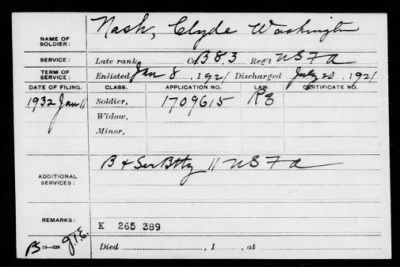 NAME OF SOLDIER: Nash, Clyde Washington
SERVICE: Late rank, Co. B 83 Reg't USFA
TERM OF SERVICE: Enlisted Jan 8, 1921 Discharged July 20, 1921
DATE OF FILING. CLASS. APPLICATION NO. LAW. CERTIFICATE NO.
1932 Jan 11 Soldier, 1709615
Widow,
Minor,
ADDITIONAL SERVICES: B & Ser Btty 11 USFA
REMARKS: K 265 389
Died , 1 , at